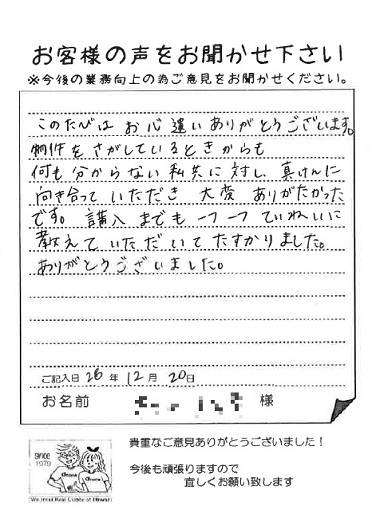 お客様の声をお聞かせ下さい
※今後の業務向上の為ご意見をお聞かせください。
このたびは お心遣いありがとうございます。
物件をさがしているときからも
何も分からない私共に対し、真けんに
向き合って いただき 大変 ありがたかった
です。購入までも 一つ一つ ていねいに
教えて いただいて たすかりました。
ありがとうございました。
ご記入日 26 年 12 月 20 日
お名前 様
since
1979
貴重なご意見ありがとうございました！
今後も頑張りますので
宜しくお願い致します